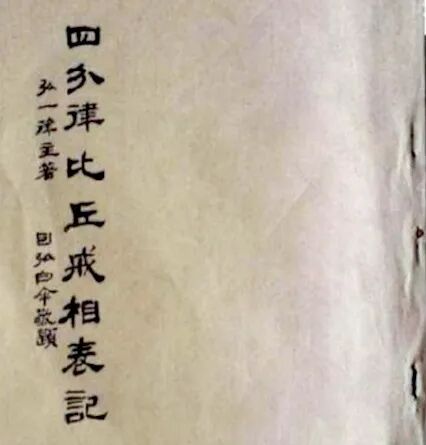 四分律比丘戒相表記
弘一律主著
因弘白伞敬題